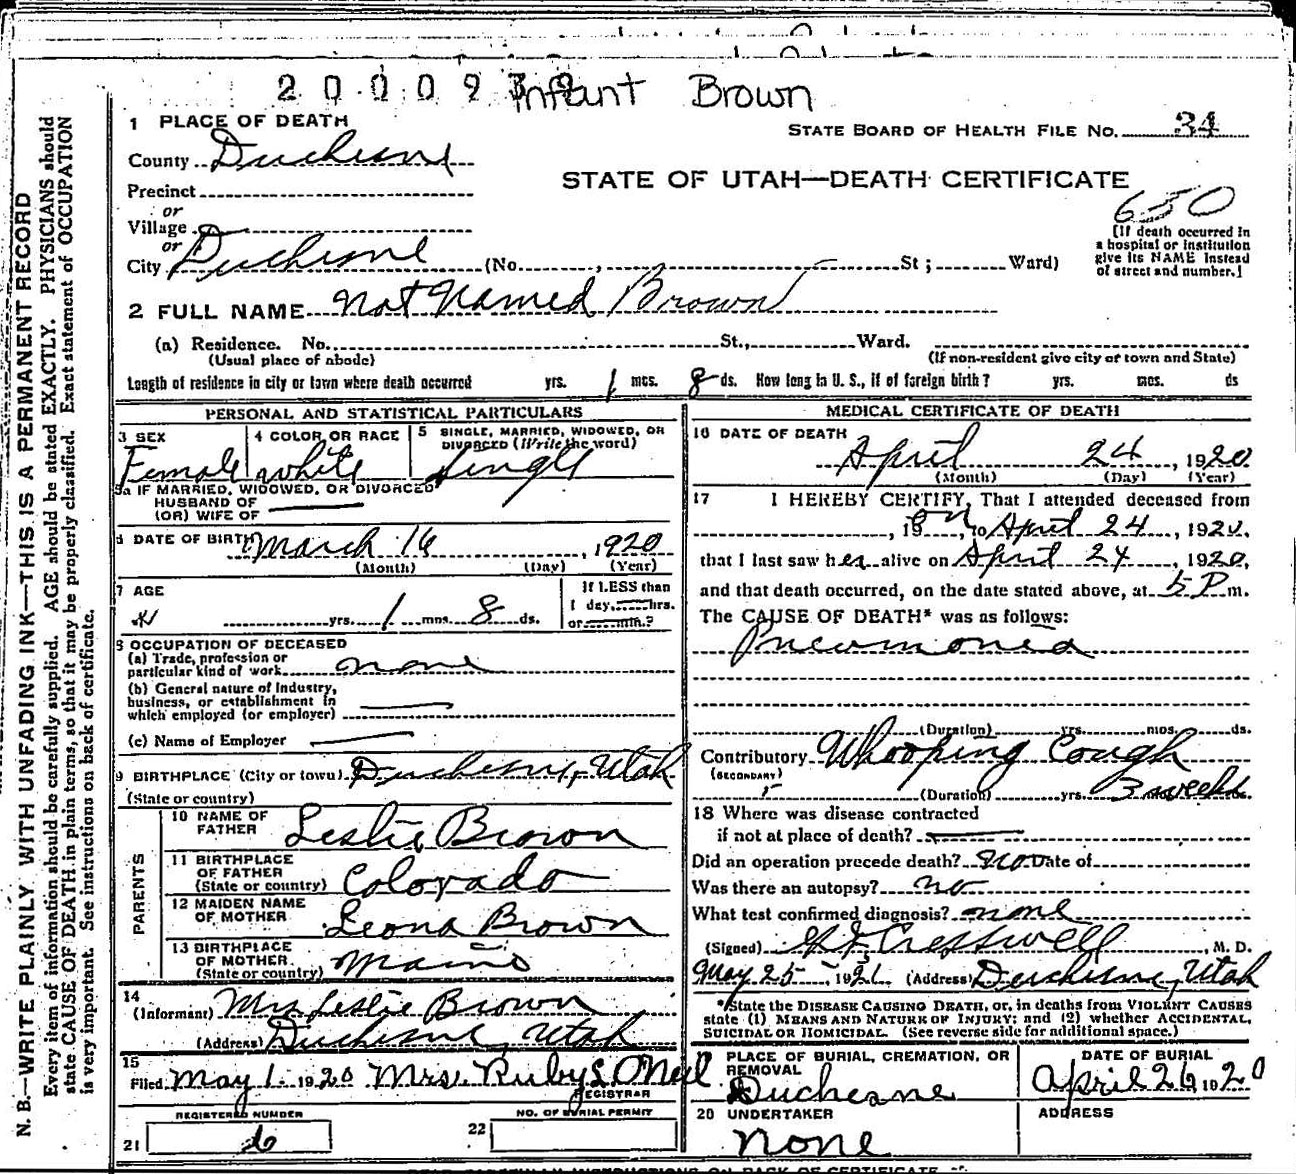 2 0 0 0 9 3 Infant Brown
1 PLACE OF DEATH
STATE BOARD OF HEALTH FILE NO. 34
County Duchesne
STATE OF UTAH—DEATH CERTIFICATE
650
Precinct
or
Village
or
City Duchesne (No. , St; Ward)
[If death occurred in
a hospital or institution
give its NAME instead
of street and number.]
2 FULL NAME Not Named Brown
(a) Residence. No. St., Ward.
(Usual place of abode)
(If non-resident give city or town and State)
Length of residence in city or town where death occurred yrs. 1 mos. 8 ds. How long in U. S., if of foreign birth? yrs. mos. ds
PERSONAL AND STATISTICAL PARTICULARS
3 SEX
Female
4 COLOR OR RACE
white
5 SINGLE, MARRIED, WIDOWED, OR
DIVORCED (Write the word)
Single
5a IF MARRIED, WIDOWED, OR DIVORCED
HUSBAND OF
(OR) WIFE OF
6 DATE OF BIRTH March 16, 1920
(Month) (Day) (Year)
7 AGE
yrs. 1 mos. 8 ds.
If LESS than
1 day, hrs.
or min.?
8 OCCUPATION OF DECEASED
(a) Trade, profession or
particular kind of work none
(b) General nature of industry,
business, or establishment in
which employed (or employer)
(c) Name of Employer
9 BIRTHPLACE (City or town) Duchesne, Utah
(State or country)
PARENTS
10 NAME OF
FATHER Leslie Brown
11 BIRTHPLACE
OF FATHER
(State or country) Colorado
12 MAIDEN NAME
OF MOTHER Leona Brown
13 BIRTHPLACE
OF MOTHER
(State or country)
14
(Informant) Mrs Leslie Brown
(Address) Duchesne, Utah
15
Filed May 1 1920 Mrs. Ruby S. O'Neil
REGISTRAR
REGISTERED NUMBER
21 6
NO. OF BURIAL PERMIT
22
MEDICAL CERTIFICATE OF DEATH
16 DATE OF DEATH
April 24, 1920
(Month) (Day) (Year)
17 I HEREBY CERTIFY, That I attended deceased from
, 19 on , to April 24, 1920,
that I last saw her alive on April 24, 1920,
and that death occurred, on the date stated above, at 5 P m.
The CAUSE OF DEATH* was as follows:
Pneumonia
(Duration) yrs. mos. ds.
Contributory Whooping Cough
(SECONDARY)
(Duration) yrs. 3 weeks ds.
18 Where was disease contracted
if not at place of death?
Did an operation precede death? no Date of
Was there an autopsy? no
What test confirmed diagnosis? none
(Signed) Cresswell, M. D.
May 25, 1921 (Address) Duchesne, Utah
*State the DISEASE CAUSING DEATH, or, in deaths from VIOLENT CAUSES
state (1) MEANS AND NATURE OF INJURY; and (2) whether ACCIDENTAL,
SUICIDAL OR HOMICIDAL. (See reverse side for additional space.)
PLACE OF BURIAL, CREMATION, OR
REMOVAL
Duchesne
DATE OF BURIAL
April 26, 1920
20 UNDERTAKER
none
ADDRESS
N. B.—WRITE PLAINLY WITH UNFADING INK—THIS IS A PERMANENT RECORD
Every item of information should be carefully supplied. AGE should be stated EXACTLY. PHYSICIANS should
state CAUSE OF DEATH in plain terms, so that it may be properly classified. Exact statement of OCCUPATION
is very important. See instructions on back of certificate.